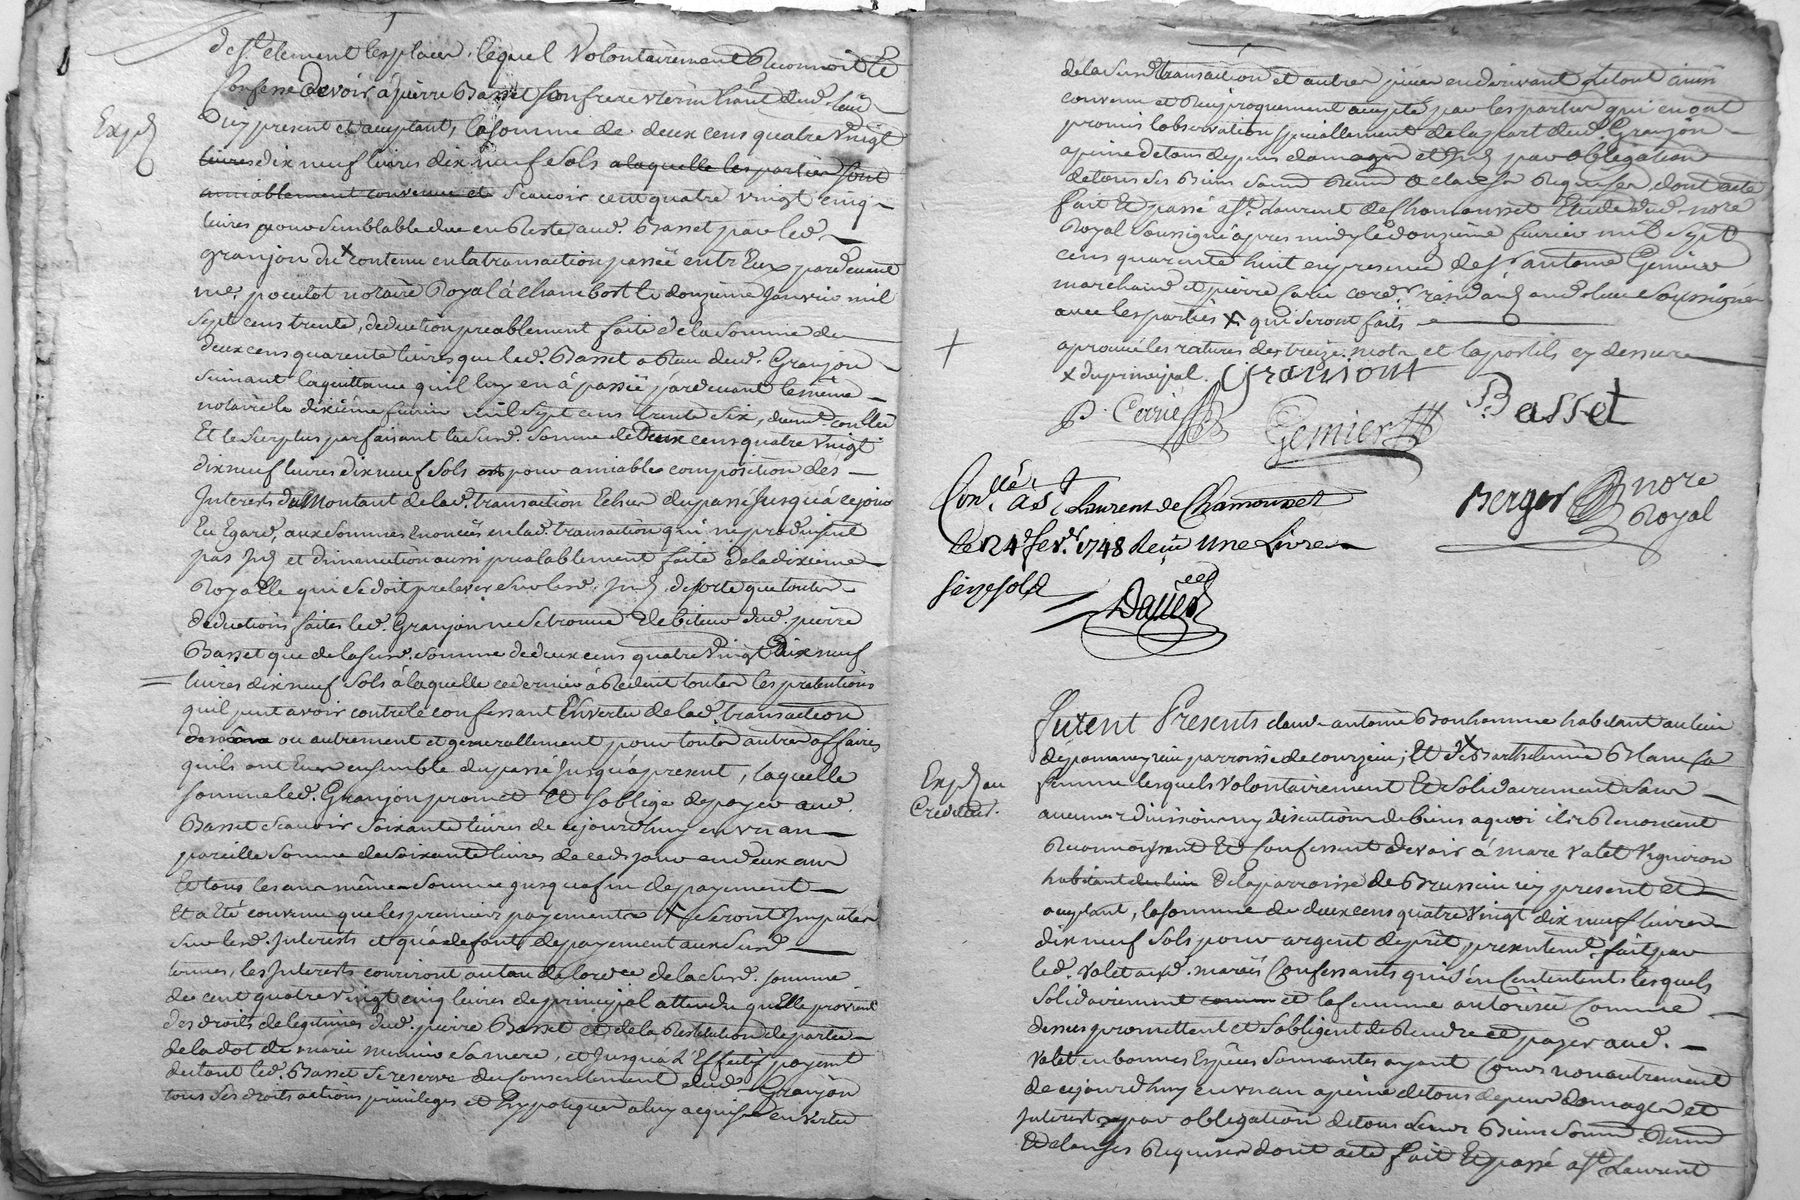 de St. Clement les places, lequel volontairement Reconnoit et
Confesse devoir à pierre Basset son frere uterin habt. dud. lieu
Expd
icy present et acceptant, la somme de deux cens quatre vingt
livres dix neuf livres dix neuf sols a laquelle les parties sont
amiablement convenue et scavoir cent quatre vingt cinq
livres pour semblable due en Reste aud. Basset par led.
granjon du x contenu en la transaction passée entr'Eux pardevant
me. notaire Royal à Chambost le douzième janvier mil
sept cens trente, deduction prealablement faite de la somme de
deux cens quarente livres que led. Basset a Reçu dud. Granjon
suivant la quittance qu'il luy en à passée pardevant le même
notaire le dixième mil sept cens trente six,
Et le surplus parfaisant lasusd. somme de Deux cens quatre vingt
dix neuf livres dix neuf sols est pour amiable composition des
Interests du Montant de lad. transaction Echus du passé jusqu'à ce jour
Eu Egard, aux sommes Enoncées en lad. transaction qui ne produisent
pas et diminution aussi prealablement faite de la dixieme
Royalle qui se doit prelever sur lesd. de sorte que toutes
deductions faites led. Granjon ne se trouve debiteur dud. pierre
Basset que de lasusd. somme de deux cens quatre vingt dix neuf
livres dix neuf sols à laquelle ce dernier à Reduit toutes les pretentions
qu'il peut avoir contre le confessant En vertu de lad. transaction
ou autrement et generallement pour toutes autres affaires
qu'ils ont Eues ensemble du passé jusqu'a present, laquelle
somme led. Granjon promet et s'oblige de payer aud.
Basset scavoir soixante livres de ce jourdhuy en un an
pareille somme de soixante livres de ced. jour en deux ans
et tous les ans même somme jusqu'a fin de payement
et a été convenu que les premiers payements x seront Imputés
sur lesd. Interests et qu'à deffaut de payement aux susd.
termes, les Interests courriront au taux de lordce. de la susd. somme
de cent quatre vingt cinq livres de principal attendu qu'Elle provient
des droits de legitimes dud. pierre Basset et de la Restitution de partie
de la dot de marie sa mere, et jusqu'à L'Effectif payemt
du tout led. Basset se reserve du consentement dud. Granjon
tous ses droits actions privileges et hypoteques a luy acquis en vertu
de la susd transaction et autres pieces en derivant Le tout ainsi
convenu et Reciproquement accepté par les parties qui en ont
promis l'observation speciallement de la part dud. Granjon
a peine de tous depens domages et par obligation
de tous ses Biens clauses Requises dont acte
fait Et passé a St. Laurent de Chamousset Etude dud. nore
Royal soussigné apres midy le douzième fevrier mil sept
cens quarente huit en presence de Sr. antoine Gemier
marchand et pierre Carié cord.r residants aud. lieu Soussignés
avec les parties x qui seront faits
+
aprouvé les ratures des treize mots et l'apostils cy dessus
x du principal. Granjont
P. Carrié Gemier Basset
Conllé. a St. Laurent de Chamousset
le 24 fevr. 1748 Reçu une Livre
seize sols
Berger nore
Royal
Furent Presents claude antoine Bonhomme habitant au lieu
parroisse de courzieu, Et x Barthelemie Blanc sa
femme lesquels volontairement Et solidairement sans
Expd au
Créditeur.
aucune division ny discution de biens a quoi ils Renoncent
Reconnoissent Et Confessent devoir à marc valet vigneron
habitant du lieu De la parroisse de Brussieu icy present et
acceptant, la somme de deux cens quatre vingt dix neuf livres
dix neuf sols pour argent de prêt presentemt. fait par
led. valet auxd. mariés Confessants qui s'en Contentent lesquels
solidairement comm et la femme autorisée Comme
dessus promettent et s'obligent de Rendre et payer aud.
valet en bonnes Espèces sonnantes ayant Cours non autrement
de ce jourdhuy en un an a peine de tous depens domages et
Interests par obligation de tous Leurs Biens
Et clauses Requises dont acte fait Et passé a St. Laurent